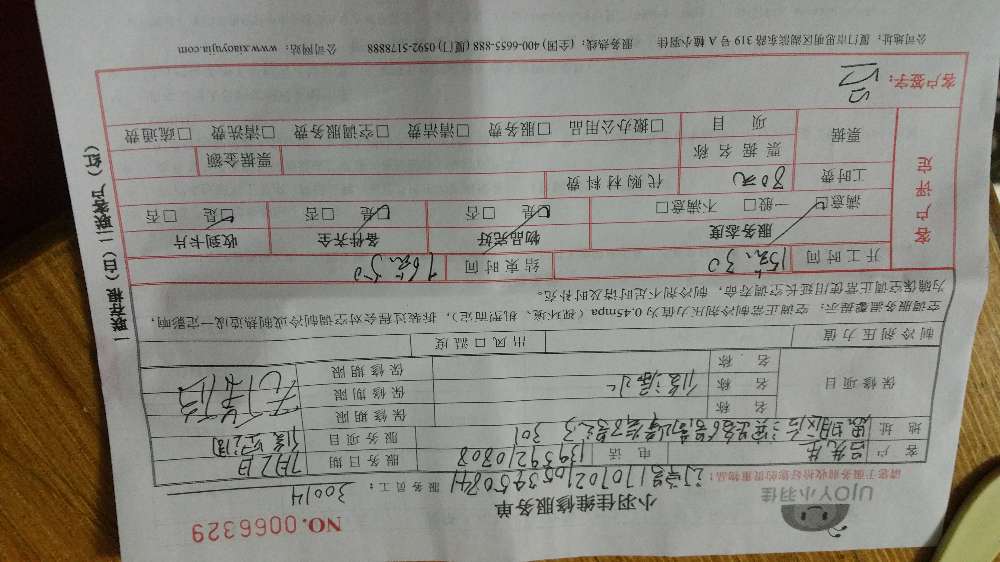 UJOY小羽佳
小羽佳维修服务单
NO.0066329
请您于服务前收拾好您的贵重物品:
订单号1707021053950841
服务员工: 30014
客户 吕先生 电话 13959210808 服务日期 7月2日
地址 思明区 301 服务项目 修空调
保修项目
名称 保修期限
名称 修漏水 保修期限 无保修
名称 保修期限
制冷剂压力值 出风口温度
空调服务温馨提示: 空调正常制冷剂压力值为0.45mpa (视环境、机型而定), 拆装过程会对空调制冷或制热造成一定影响,
为确保空调正常使用延长空调寿命, 制冷剂不足时请及时补充。
客户评定
开工时间 15点:30 结束时间 16点:50
服务态度 物品完好 备件齐全 收到卡片
满意☑ 一般□ 不满意□ ☑是 □否 ☑是 □否 ☑是 □否
工时费 80元 代购材料费
票据 票据名称 票据金额
项目 □搬办公用品 □服务费 □清洁费 □空调服务费 □清洗费 □疏通费
客户签字:
一联存根 (白) 二联客户 (红)
公司地址: 厦门市思明区湖滨东路319号A幢小羽佳 服务热线: (全国) 400-6655-888 (厦门) 0592-5178888 公司网站: www.xiaoyujia.com